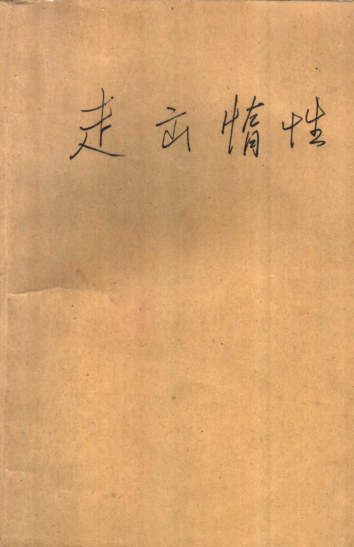 走出惰性